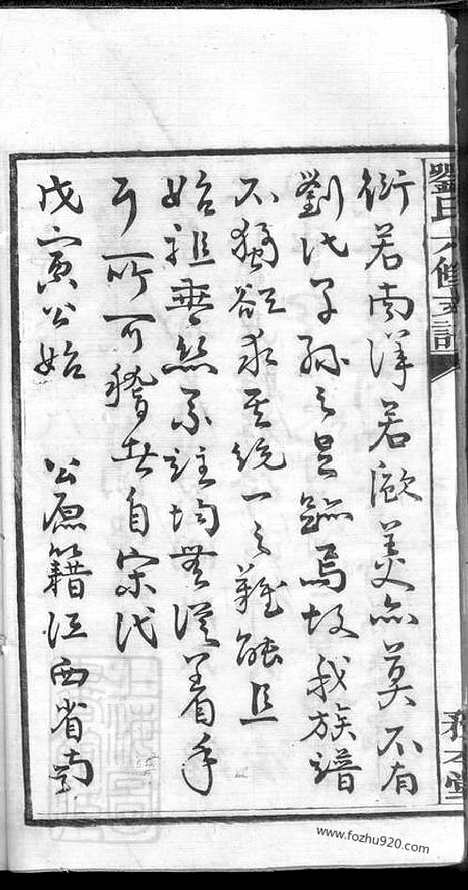 劉氏六修支譜
衍若南洋若歐美亦莫不有
劉氏子孫之足跡焉故我族譜
不獨欲求其統一之難能且
始祖無系註均無從着手
于所可稽者自宋代
戊寅公始 公原籍江西省南
www.fozhu920.com